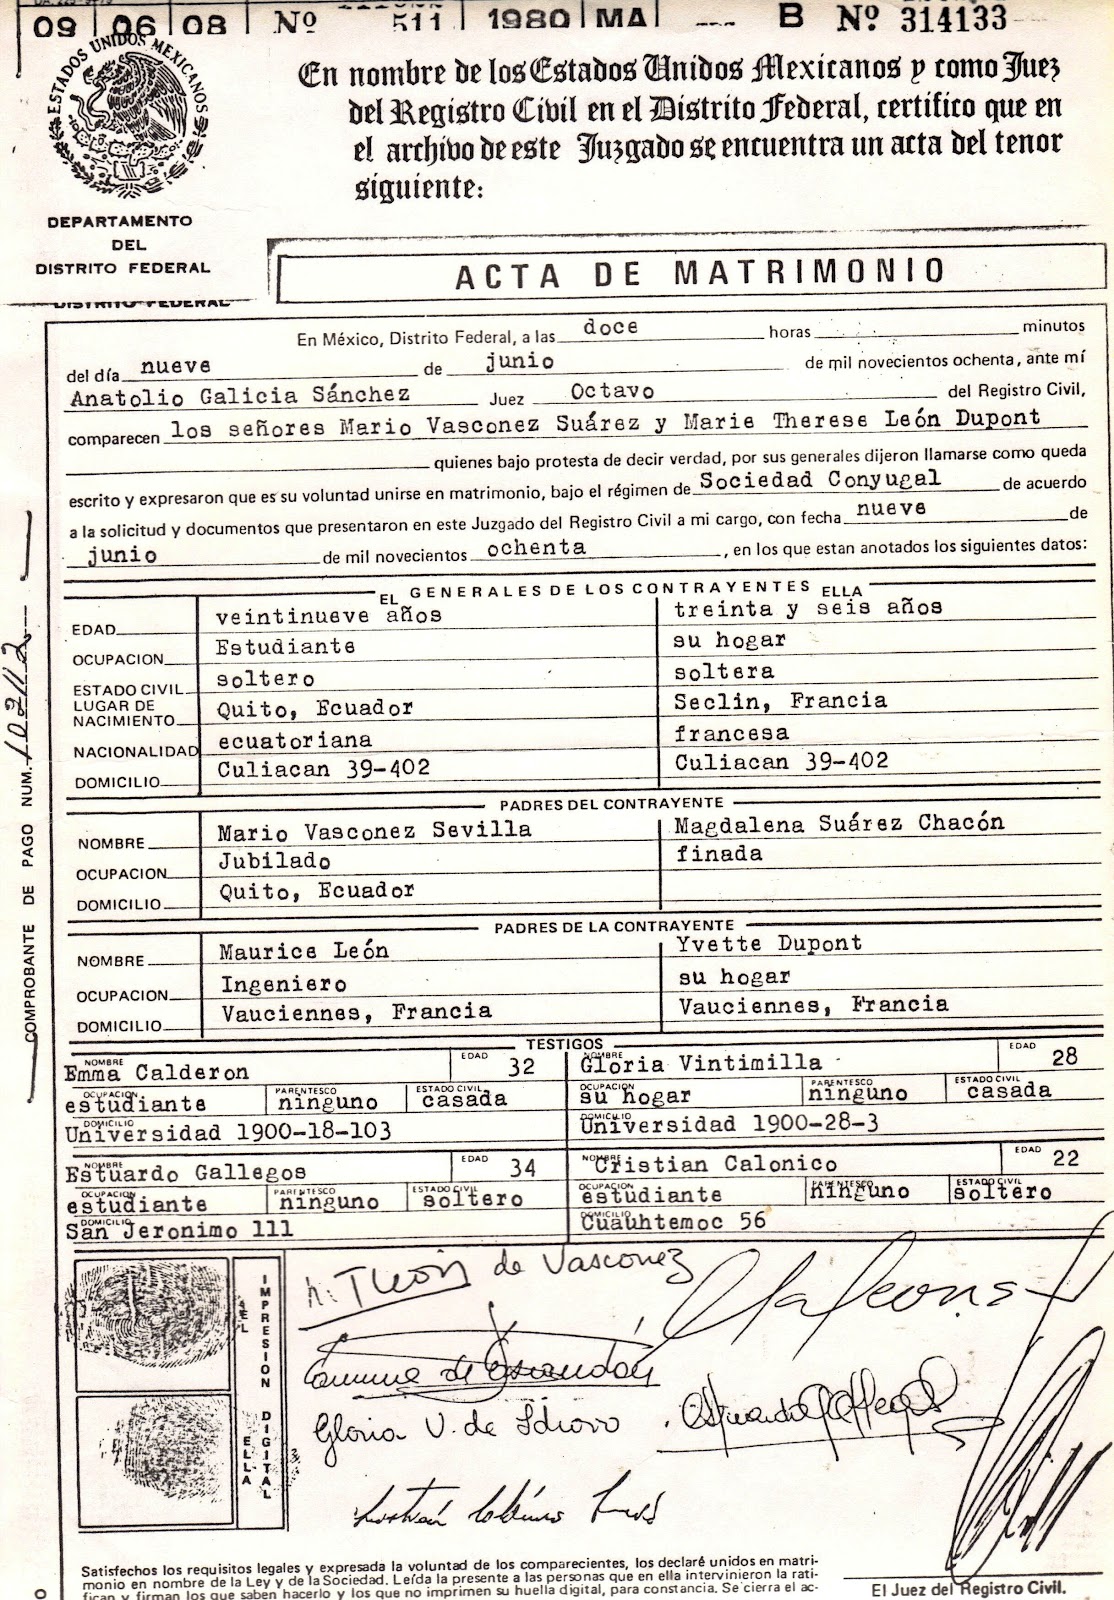 09 06 08 Nº 511 1980 MA B Nº 314133
ESTADOS UNIDOS MEXICANOS
En nombre de los Estados Unidos Mexicanos y como Juez
del Registro Civil en el Distrito Federal, certifico que en
el archivo de este Juzgado se encuentra un acta del tenor
siguiente:
DEPARTAMENTO
DEL
DISTRITO FEDERAL
DISTRITO FEDERAL
ACTA DE MATRIMONIO
En México, Distrito Federal, a las doce horas minutos
del día nueve de junio de mil novecientos ochenta, ante mí
Anatolio Galicia Sánchez Juez Octavo del Registro Civil,
comparecen los señores Mario Vasconez Suárez y Marie Therese León Dupont
quienes bajo protesta de decir verdad, por sus generales dijeron llamarse como queda
escrito y expresaron que es su voluntad unirse en matrimonio, bajo el régimen de Sociedad Conyugal de acuerdo
a la solicitud y documentos que presentaron en este Juzgado del Registro Civil a mi cargo, con fecha nueve de
junio de mil novecientos ochenta, en los que estan anotados los siguientes datos:
EL GENERALES DE LOS CONTRAYENTES ELLA
EDAD veintinueve años treinta y seis años
OCUPACION Estudiante su hogar
ESTADO CIVIL soltero soltera
LUGAR DE
NACIMIENTO Quito, Ecuador Seclin, Francia
NACIONALIDAD ecuatoriana francesa
DOMICILIO Culiacan 39-402 Culiacan 39-402
PADRES DEL CONTRAYENTE
NOMBRE Mario Vasconez Sevilla Magdalena Suárez Chacón
OCUPACION Jubilado finada
DOMICILIO Quito, Ecuador
PADRES DE LA CONTRAYENTE
NOMBRE Maurice León Yvette Dupont
OCUPACION Ingeniero su hogar
DOMICILIO Vauciennes, Francia Vauciennes, Francia
TESTIGOS
NOMBRE Emma Calderon EDAD 32 NOMBRE Gloria Vintimilla EDAD 28
OCUPACION estudiante PARENTESCO ninguno ESTADO CIVIL casada OCUPACION su hogar PARENTESCO ninguno ESTADO CIVIL casada
DOMICILIO Universidad 1900-18-103 DOMICILIO Universidad 1900-28-3
NOMBRE Estuardo Gallegos EDAD 34 NOMBRE Cristian Calonico EDAD 22
OCUPACION estudiante PARENTESCO ninguno ESTADO CIVIL soltero OCUPACION estudiante PARENTESCO ninguno ESTADO CIVIL soltero
DOMICILIO San Jeronimo 111 DOMICILIO Cuauhtemoc 56
COMPROBANTE DE PAGO NUM.
IMPRESION DIGITAL
EL
ELLA
León de Vasconez
Gloria V. de
Satisfechos los requisitos legales y expresada la voluntad de los comparecientes, los declaré unidos en matri-
monio en nombre de la Ley y de la Sociedad. Leída la presente a las personas que en ella intervinieron la rati-
fican y firman los que saben hacerlo y los que no imprimen su huella digital, para constancia. Se cierra el ac-
El Juez del Registro Civil.